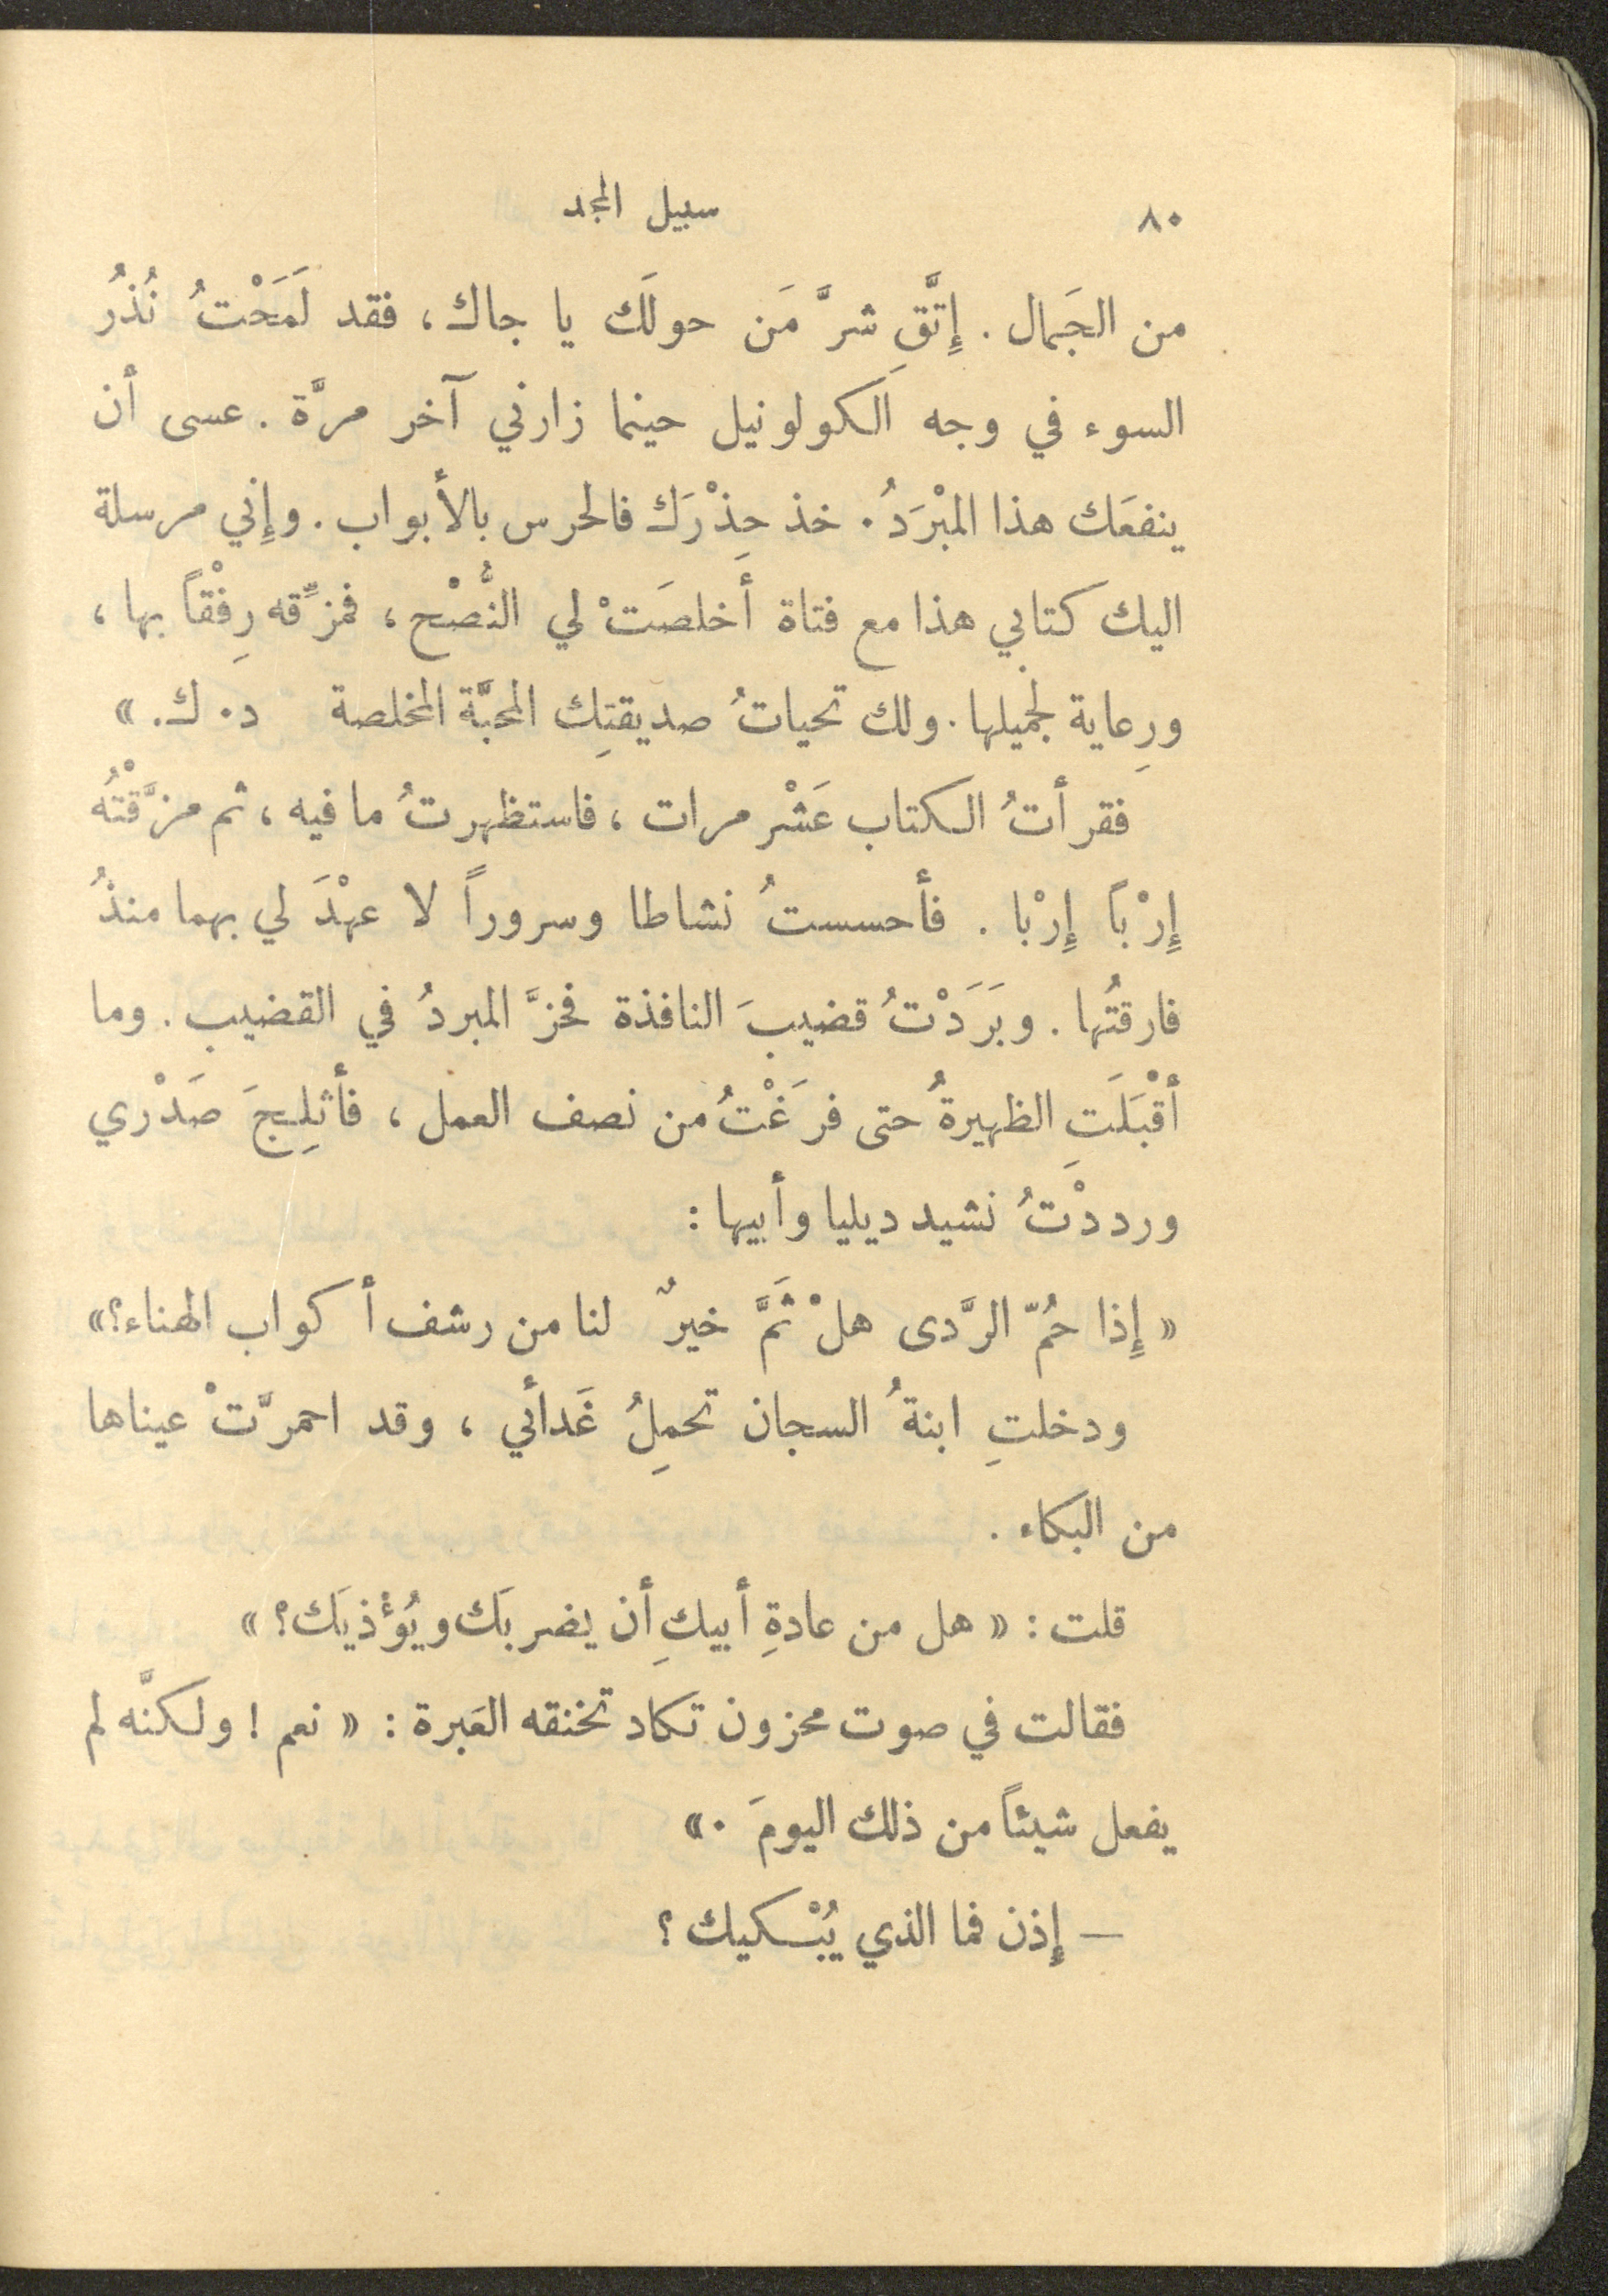 ٨٠ سبيل المجد
من الجَمال . إِتَّقِ شرَّ مَن حولَك يا جاك ، فقد لَمَحْتُ نُذُر
السوء في وجه الكولونيل حينما زارني آخر مرَّة . عسى أن
ينفعَك هذا المبْرَدُ . خذ حِذْرَك فالحرس بالأبواب . وإِني مرسلة
اليك كتابي هذا مع فتاة أَخلصَتْ لي النُّصْح ، فمزِّقه رِفْقاً بها ،
ورِعاية لجميلها . ولك تحياتُ صديقتِك المحبَّة المخلصة د . ك . »
فقرأتُ الكتاب عَشْر مرات ، فاستظهرتُ ما فيه ، ثم مزَّقْتُه
إِرْباً إِرْبا . فأحسستُ نشاطا وسروراً لا عهْدَ لي بهما منذُ
فارقتُها . وبَرَدْتُ قضيبَ النافذة فحزَّ المبردُ في القضيب . وما
أقْبَلَتِ الظهيرةُ حتى فرَغْتُ من نصف العمل ، فأثلِجَ صَدْري
ورددْتُ نشيد ديليا وأبيها :
« إِذا حُمّ الرَّدى هلْ ثَمَّ خيرٌ لنا من رشف أكواب الهناء؟ »
ودخلتِ ابنةُ السجان تحملُ غَدائي ، وقد احمرَّتْ عيناها
من البكاء .
قلت : « هل من عادةِ أبيكِ أن يضربَك ويُؤْذيَك ؟ »
فقالت في صوت محزون تكاد تخنقه العَبرة : « نعم ! ولكنَّه لم
يفعل شيئاً من ذلك اليومَ . »
— إِذن فما الذي يُبْكيك ؟